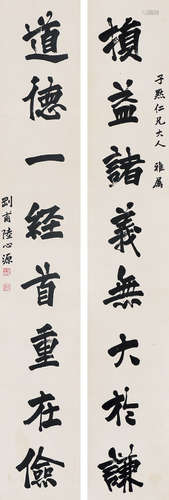 子熙仁兄大人 雅属
損益諸義無大於謙
道德一経首重在儉
剛甫陸心源